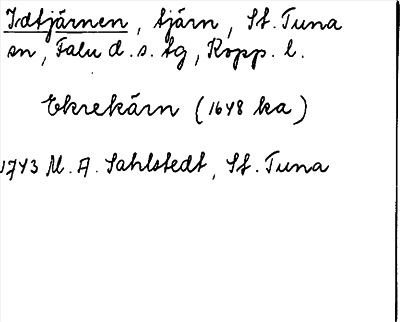 Idtjärnen, tjärn, St. Tuna
sn, Falu d. s. tg, Kopp. l.
Ekrekärn (1648 ka)
1743 M. A. Sahlstedt, St. Tuna